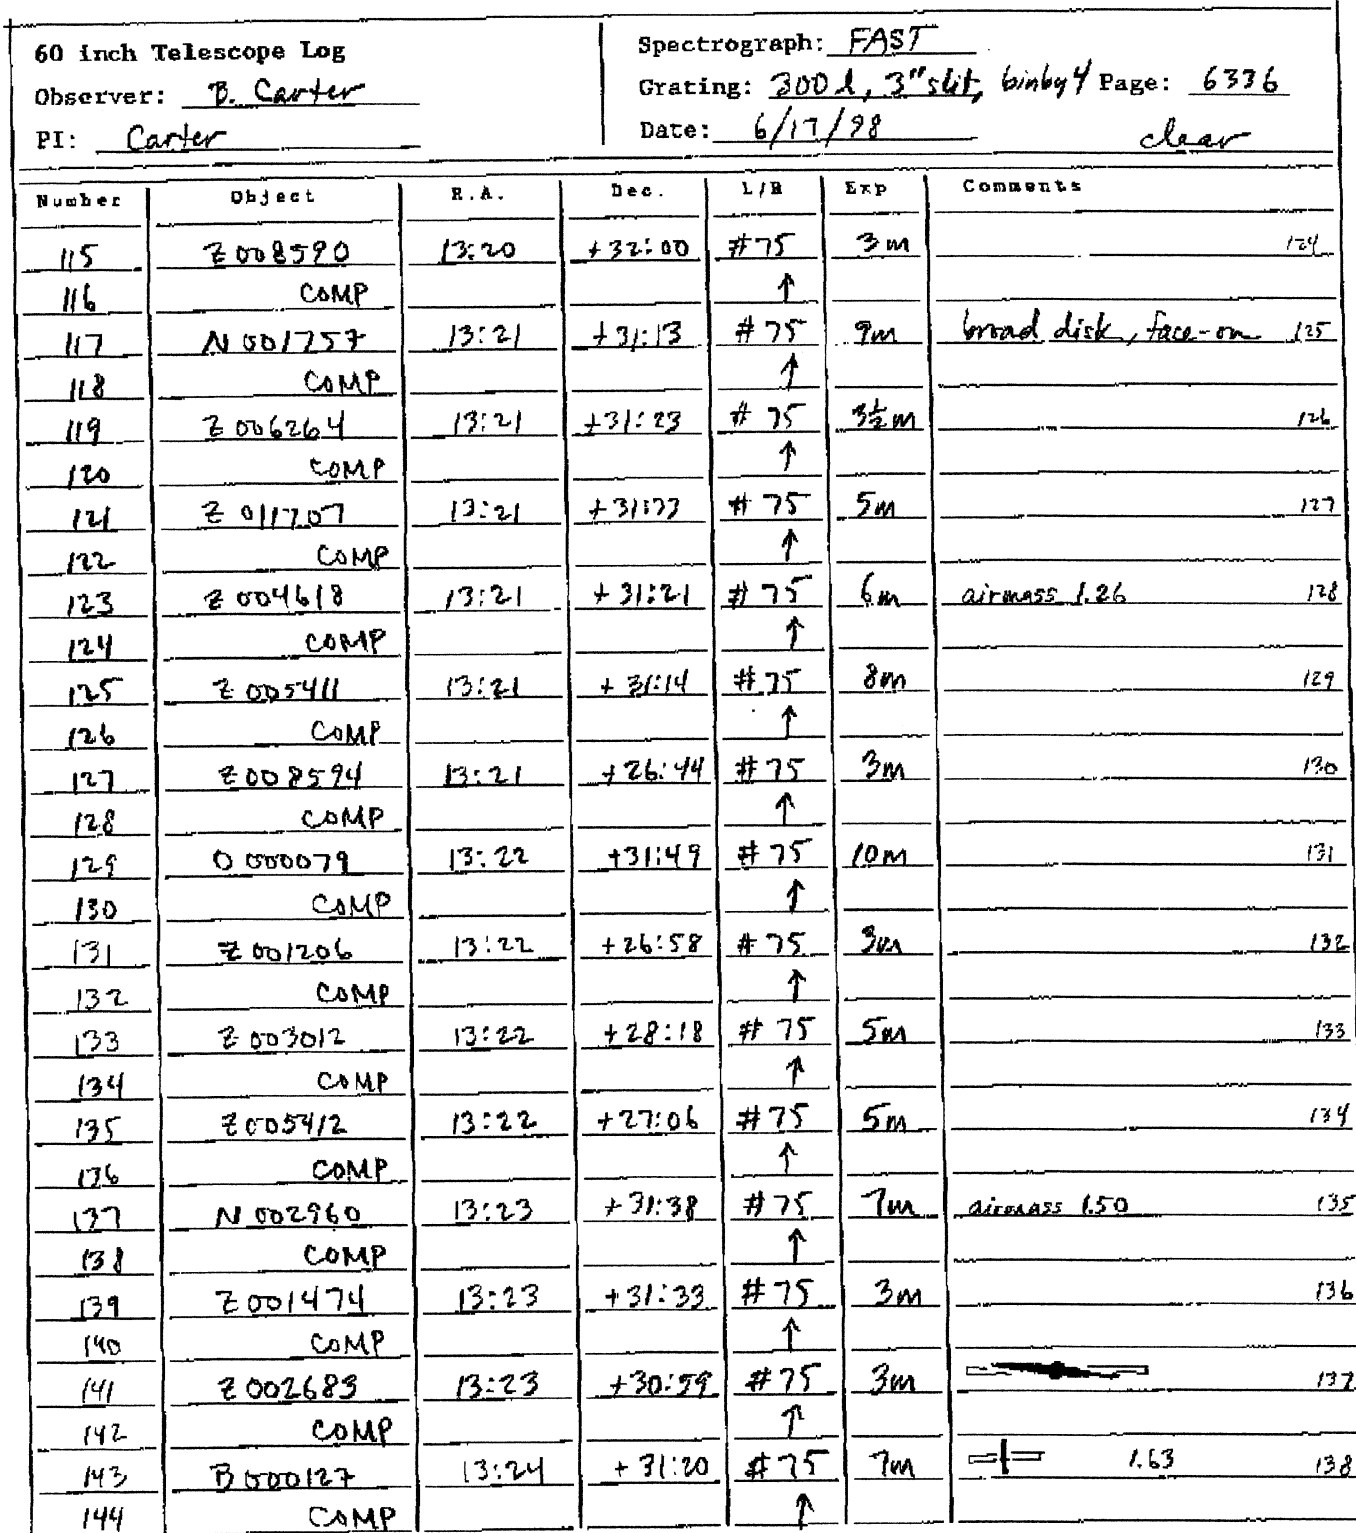 60 inch Telescope Log
Spectrograph: FAST
Observer: B. Carter
Grating: 300 l, 3" slit, binby4 Page: 6336
PI: Carter
Date: 6/17/98 clear
Number Object R.A. Dec. L/R Exp Comments
115 Z008590 13:20 +32:00 #75 3m 124
116 COMP ↑
117 N001757 13:21 +31:13 #75 9m broad disk, face-on 125
118 COMP ↑
119 Z006264 13:21 +31:23 #75 3½m 126
120 COMP ↑
121 Z011707 13:21 +31:33 #75 5m 127
122 COMP ↑
123 Z004618 13:21 +31:21 #75 6m airmass 1.26 128
124 COMP ↑
125 Z005411 13:21 +31:14 #75 8m 129
126 COMP ↑
127 Z008594 13:21 +26:44 #75 3m 130
128 COMP ↑
129 O000079 13:22 +31:49 #75 10m 131
130 COMP ↑
131 Z001206 13:22 +26:58 #75 3m 132
132 COMP ↑
133 Z003012 13:22 +28:18 #75 5m 133
134 COMP ↑
135 Z005412 13:22 +27:06 #75 5m 134
136 COMP ↑
137 N002960 13:23 +31:38 #75 7m airmass 1.50 135
138 COMP ↑
139 Z001474 13:23 +31:33 #75 3m 136
140 COMP ↑
141 Z002683 13:23 +30:59 #75 3m 137
142 COMP ↑
143 B000127 13:24 +31:20 #75 7m 1.63 138
144 COMP ↑